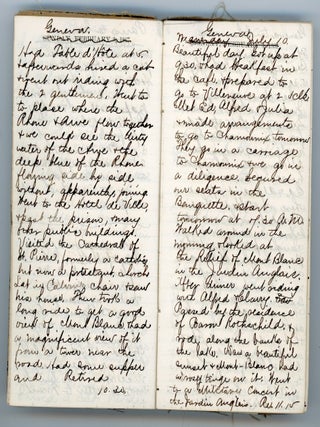 Geneva.
Had Table d'Hote at 6
& afterwards hired a cab
& went out riding with
the 2 gentlemen. Went to
to place where the
Rhone & Arve flow together
& we could see the dirty
water of the Arve & the
deep blue of the Rhone
flowing side by side
without, apparently, joining
Went to the Hotel de Ville,
& past the prison, many
other public buildings.
Visited the Cathedral of
St. Pierre, formerly a catholic
but now a protestant church
sat in Calvin's chair & saw
his house. Then took a
long ride to get a good
view of Mont Blanc & had
a magnificent view of it
from a tower near the
road. Had some supper
and Retired
10.30.
Geneva
July 10.
Beautiful day. Got up at
9.30. Had Breakfast in
the Café & prepared to
go to Villeneuve at 2 o'clk.
Met Ed, Alfred & Julia
& made arrangements
to go to Chamounix tomorrow
They go in a carriage
to Chamounix & we go in
a diligence. Secured
our seats in the
Banquette, & start
tomorrow at 7.30 A.M.
Walked around in the
morning & looked at
the Relief of Mont Blanc
in the Jardin Anglais.
After dinner went riding
with Alfred
Passed by the residence
of Baron Rothschild &
rode along the banks of
the lake. Was a beautiful
sunset & Mont-Blanc had
a rosy tinge on it. Went
to a Militaire Concert in
the Jardin Anglais. Ret 11.15